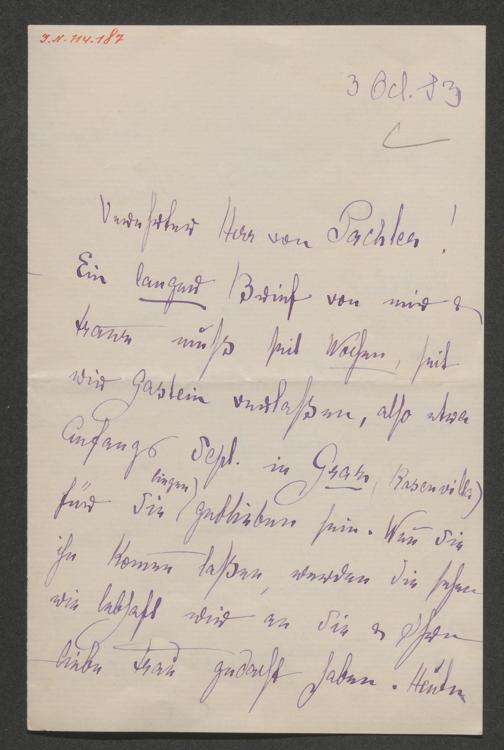 I.N. 114.187
3 Oct. 83
Verehrter Herr von Pachler!
Ein langer Brief von mir &
Franz muß seit Wochen, seit
wir Gastein verlaßen, also etwa
Anfangs Sept. in Graz, (Rosenvilla)
für Sie (liegen) geblieben sein. Wen̄ Sie
ihn kom̄en laßen, werden Sie sehen
wie lebhaft wir an Sie & Ihre
liebe Frau gedacht haben. Heute